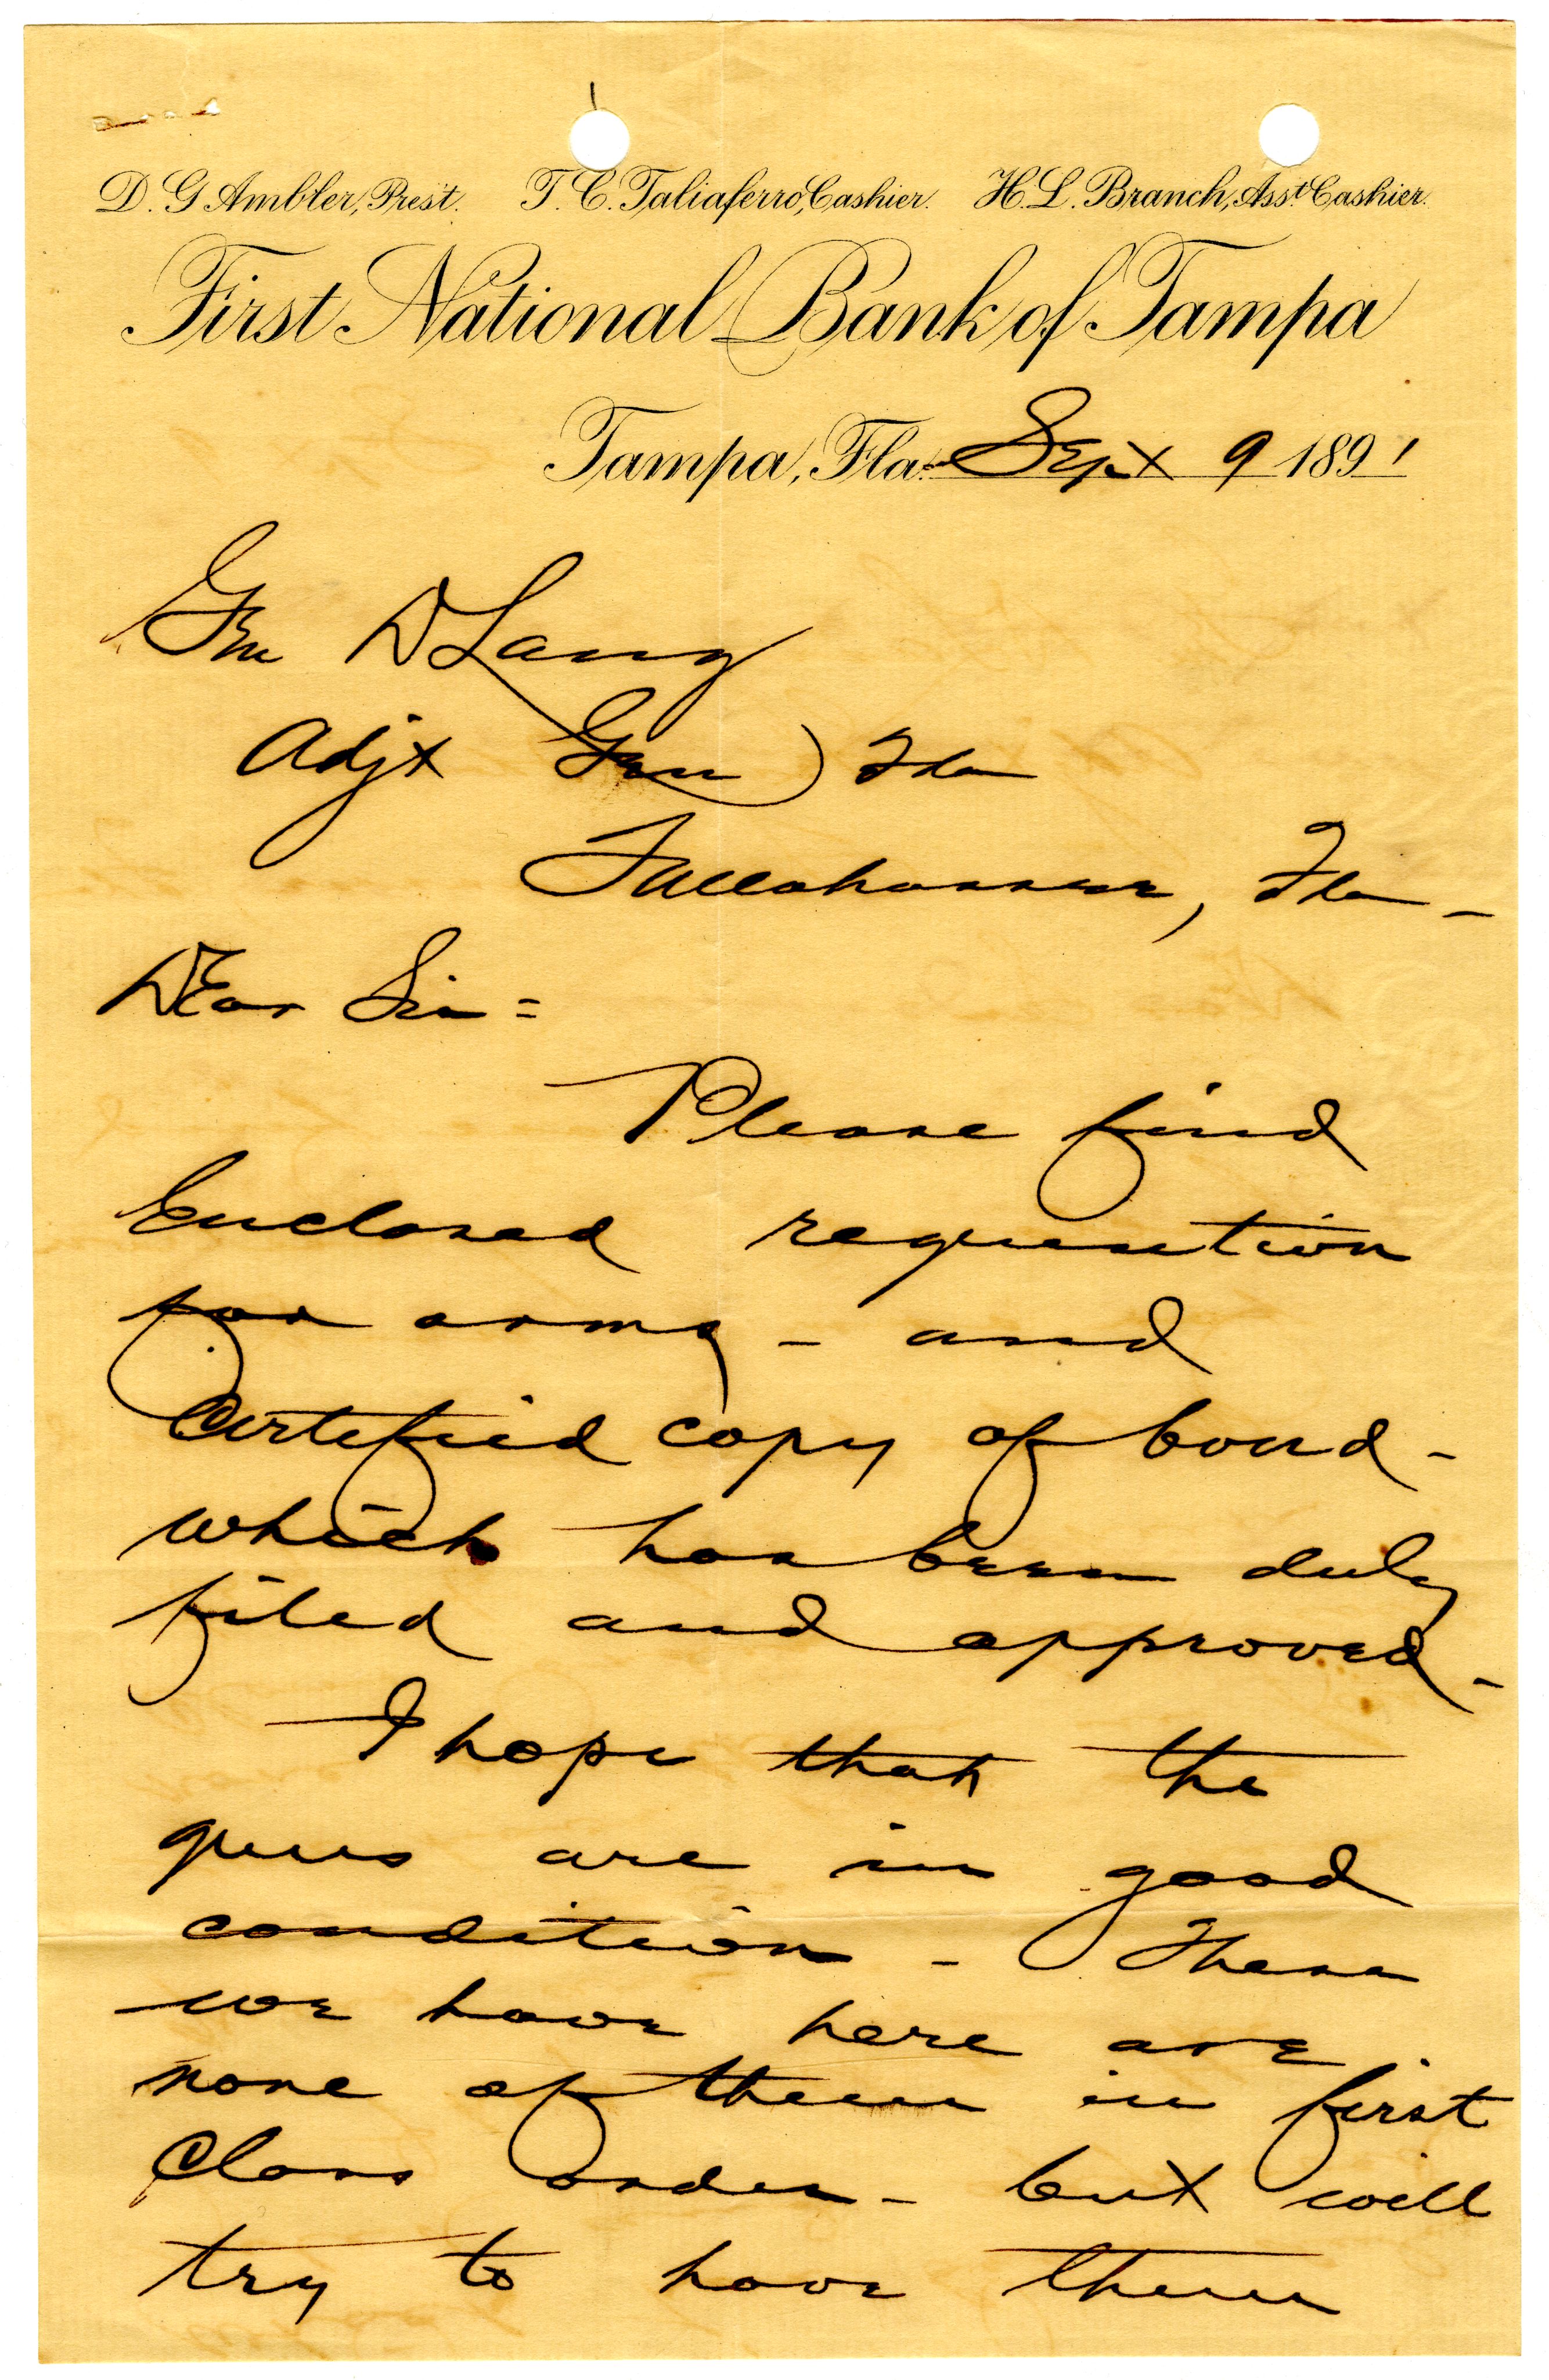 D. G. Ambler, Prest. T. C. Taliaferro, Cashier. H. L. Branch, Asst. Cashier.
First National Bank of Tampa
Tampa, Fla. Sept 9 1891
Gen D Lang
Adjt Gen Fla
Tallahassee, Fla -
Dear Sir =
Please find
Enclosed requisition
for arms - and
Certified copy of bond -
which has been duly
filed and approved -
I hope that the
guns are in good
condition - These
we have here are
none of them in first
Class order - but will
try to have them